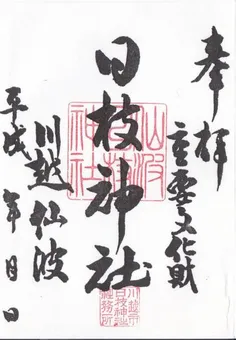 奉拝
重要文化財
日枝神社
仙波日枝神社
川越市日枝神社社務所
川越仙波
平成 年 月 日